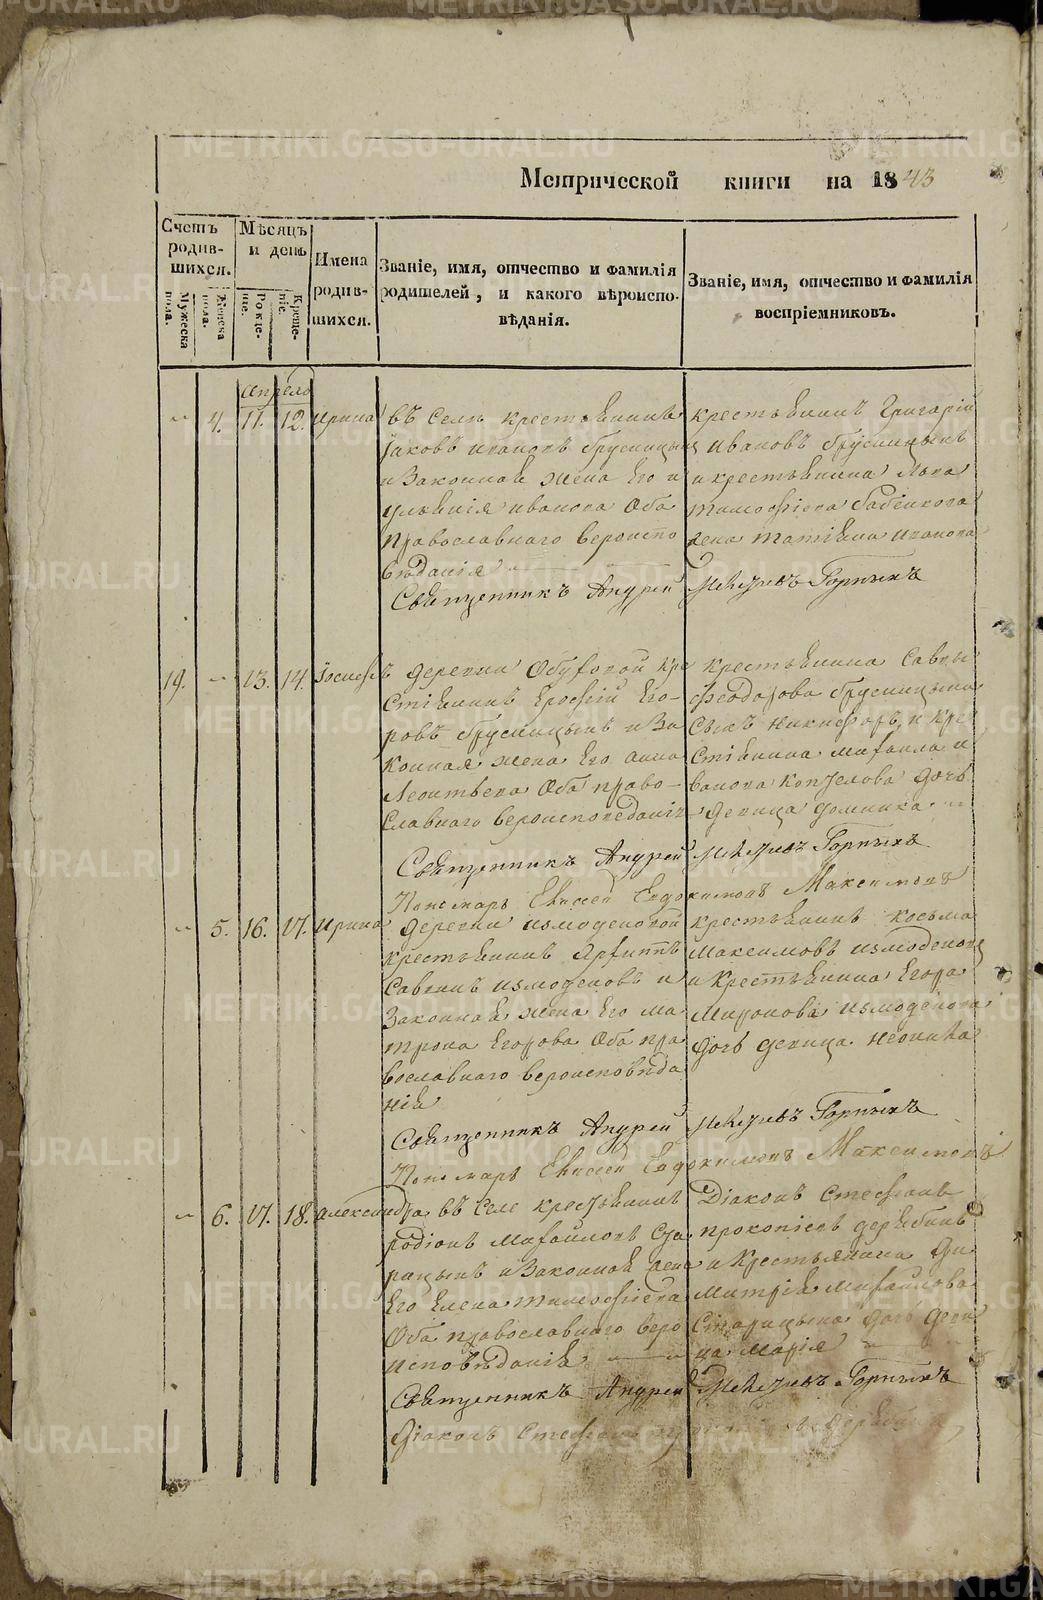 Метрической книги на 1843
Счетъ родившихся.
Мужеска пола.
Женска пола.
Мѣсяцъ и день
Рожде-
ніе.
Креще-
ніе.
Имена родив-
шихся.
Званіе, имя, отчество и фамилія
родителей, и какого вѣроиспо-
вѣданія.
Званіе, имя, отчество и фамилія
воспріемниковъ.
Апрель
4. 11. 12. Ирина
въ Селѣ крестьянинъ
Іаковъ Ивановъ Брусницынъ
и Законная жена Его и
улянія иванова Оба
православнаго вероиспо
вѣданія
крестьянинъ Григорій
Ивановъ брусницынъ
и крестьянина
тимофіева
жена татіяна иванова
Священникъ Андрей Горныхъ
19. 13. 14. Іосифъ
деревни кре
стіянинъ Ерофій Его-
ровъ брусницынъ и За
конная жена Его анна
Леонтьева Оба право-
славнаго вероисповеданія
крестьянина Саввы
феодорова брусницына
Сынъ Никифоръ, и кре
стіянина михаила и
ванова копылова дочь
девица домника
Священникъ Андрей Горныхъ
Пономарь Елисей Евдокимовъ Максимовъ
5. 16. 17. Ирина
деревни измоденовой
крестьянинъ Архиппъ
Саввинъ измоденовъ и
Законная жена Его ма
трона Егорова Оба пра
вославнаго вероисповѣда
нія
крестьянинъ косьма
Максимовъ измоденовъ
и крестьянина Егора
Миронова измоденова
дочь девица
Священникъ Андрей Горныхъ
Пономарь Елисей Евдокимовъ Максимовъ
6. 17. 18. Александра
въ Селе крестьянинъ
родіонъ Михайловъ Ста
рицынъ и Законная жена
Его Елена тимофіева
Оба православнаго веро
исповѣданія
Діаконъ Стефанъ
прокопіевъ дерябинъ
и Крестьянина Ди
митрія михайлова
Старицына дочь деви
ца марія
Священникъ Андрей Горныхъ
Діаконъ Стефанъ